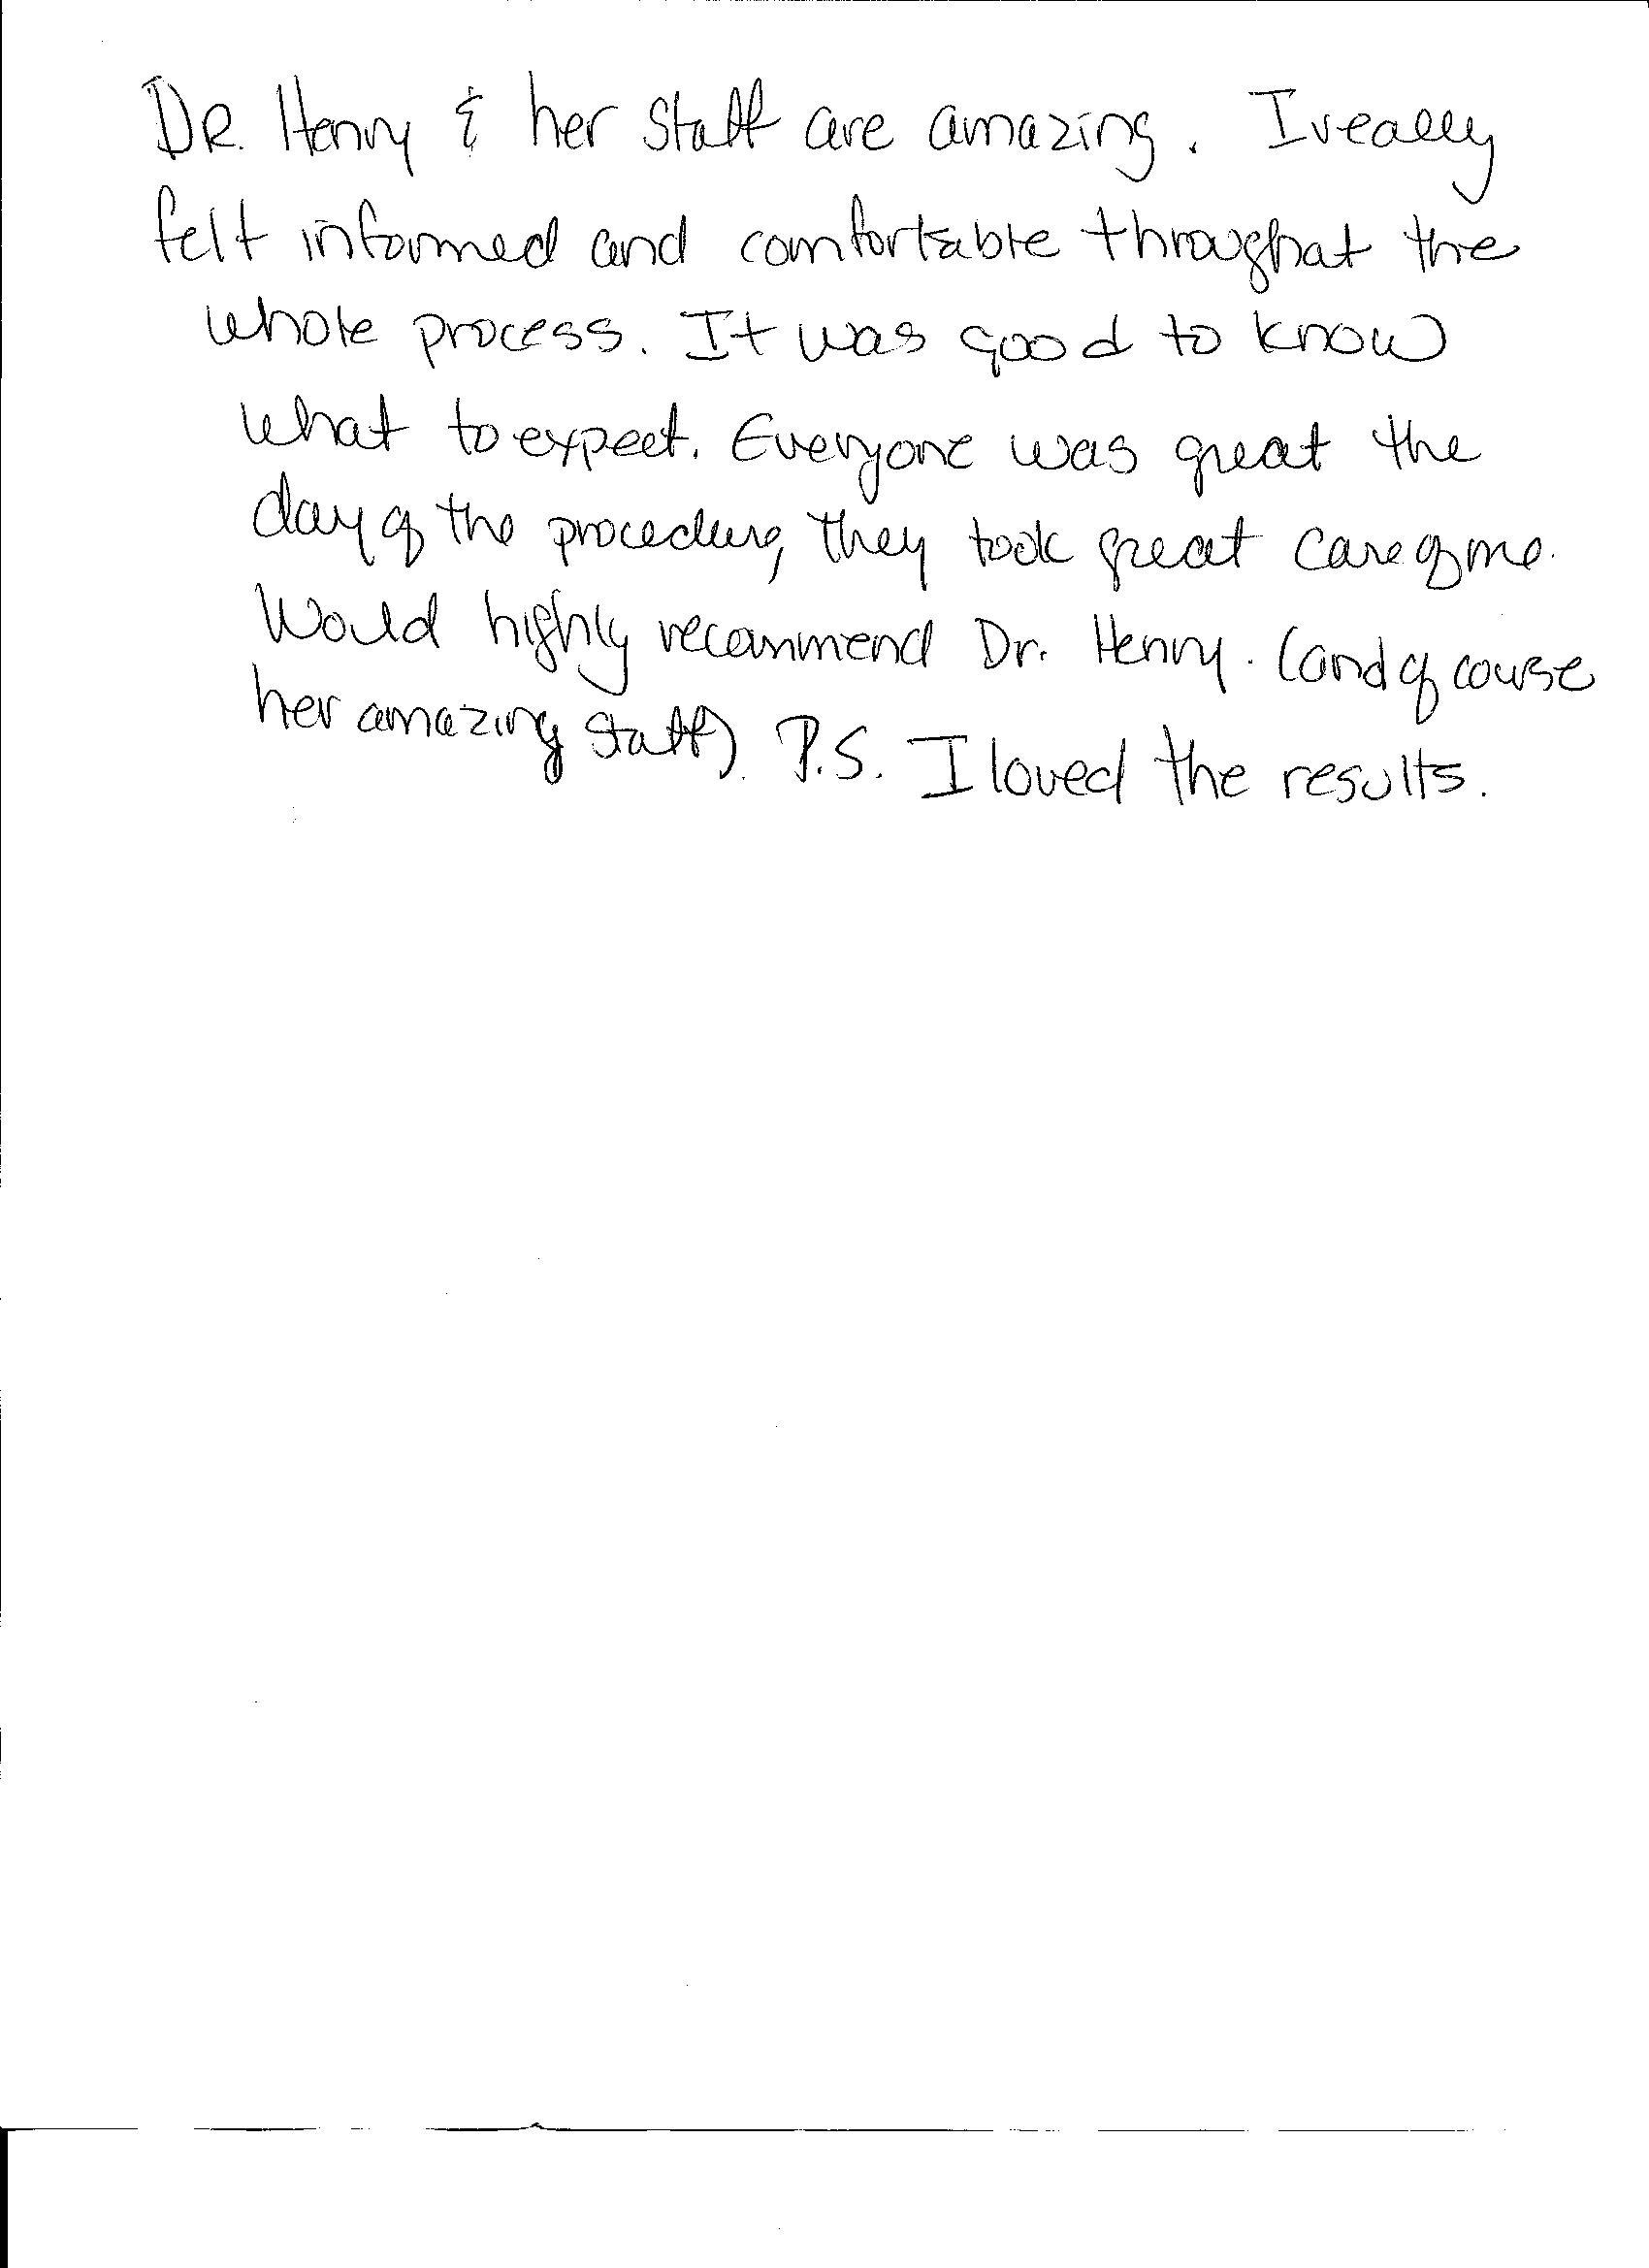 DR. Henry & her staff are amazing. I really
felt informed and comfortable throughout the
whole process. It was good to know
what to expect. Everyone was great the
day of the procedure, they took great care of me.
Would highly recommend Dr. Henry. (and of course
her amazing staff). P.S. I loved the results.